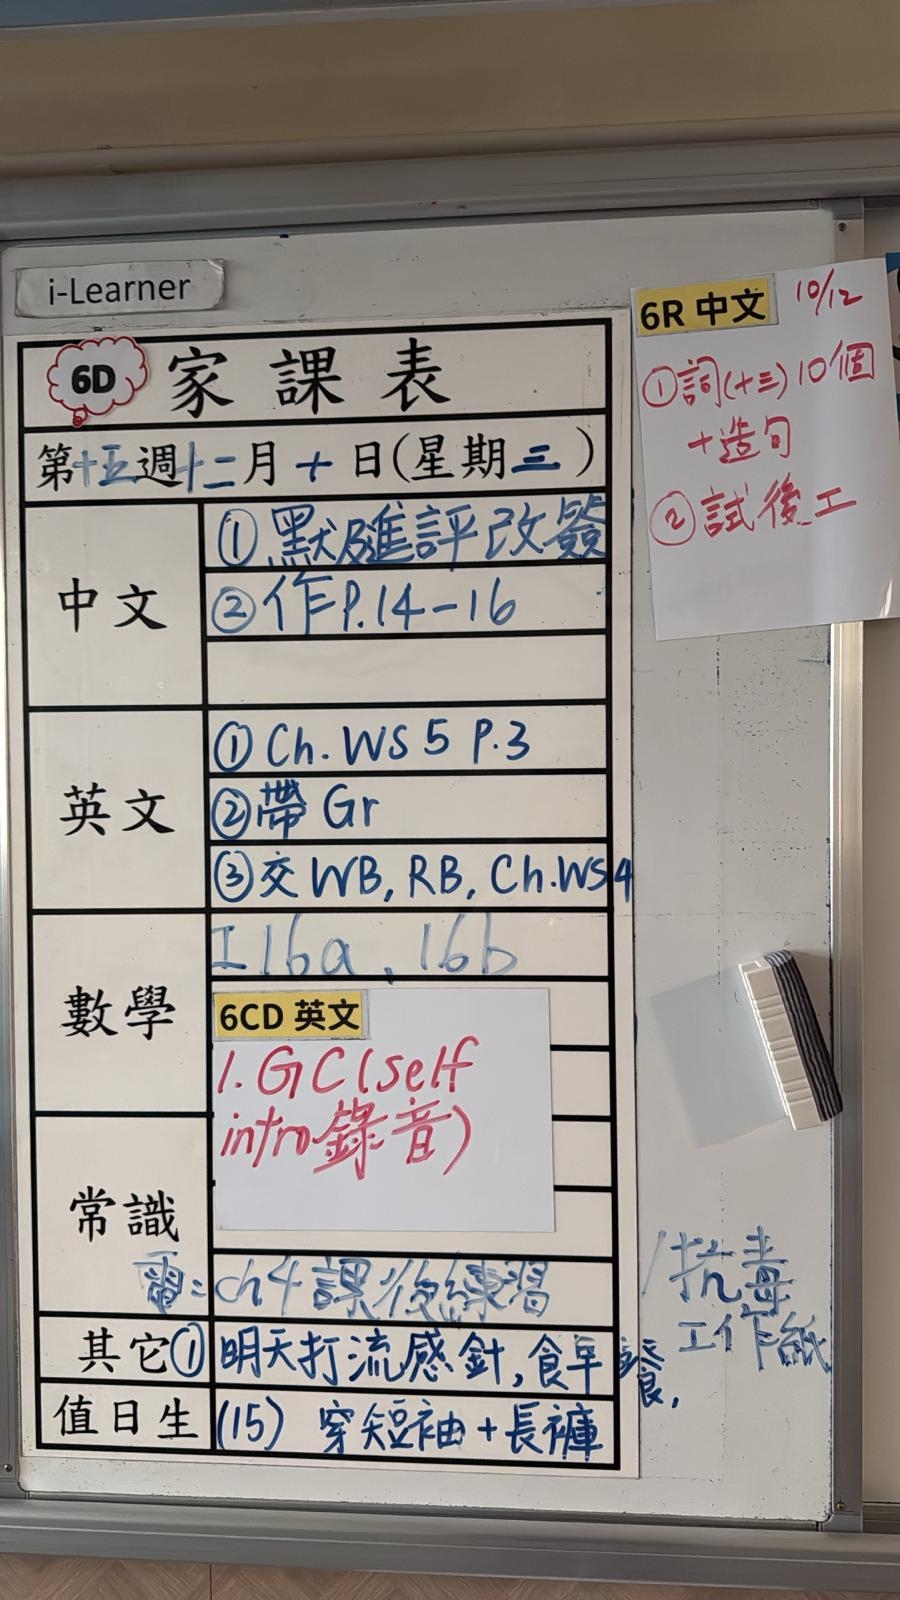 i-Learner
6D 家課表
第十五週十二月十日(星期三)
中文
① 默及進評改簽
② 作P.14-16
英文
① Ch. WS 5 P.3
② 帶 Gr
③ 交 WB, RB, Ch.WS 4
數學
工16a、16b
6CD 英文
1. GC(self
intro錄音)
常識
電: ch4 課後練習
/抗毒
工作紙
其它 ① 明天打流感針,食早餐,
值日生 (15) 穿短袖+長褲
6R 中文 10/12
① 詞(十三)10個
+造句
② 試後工